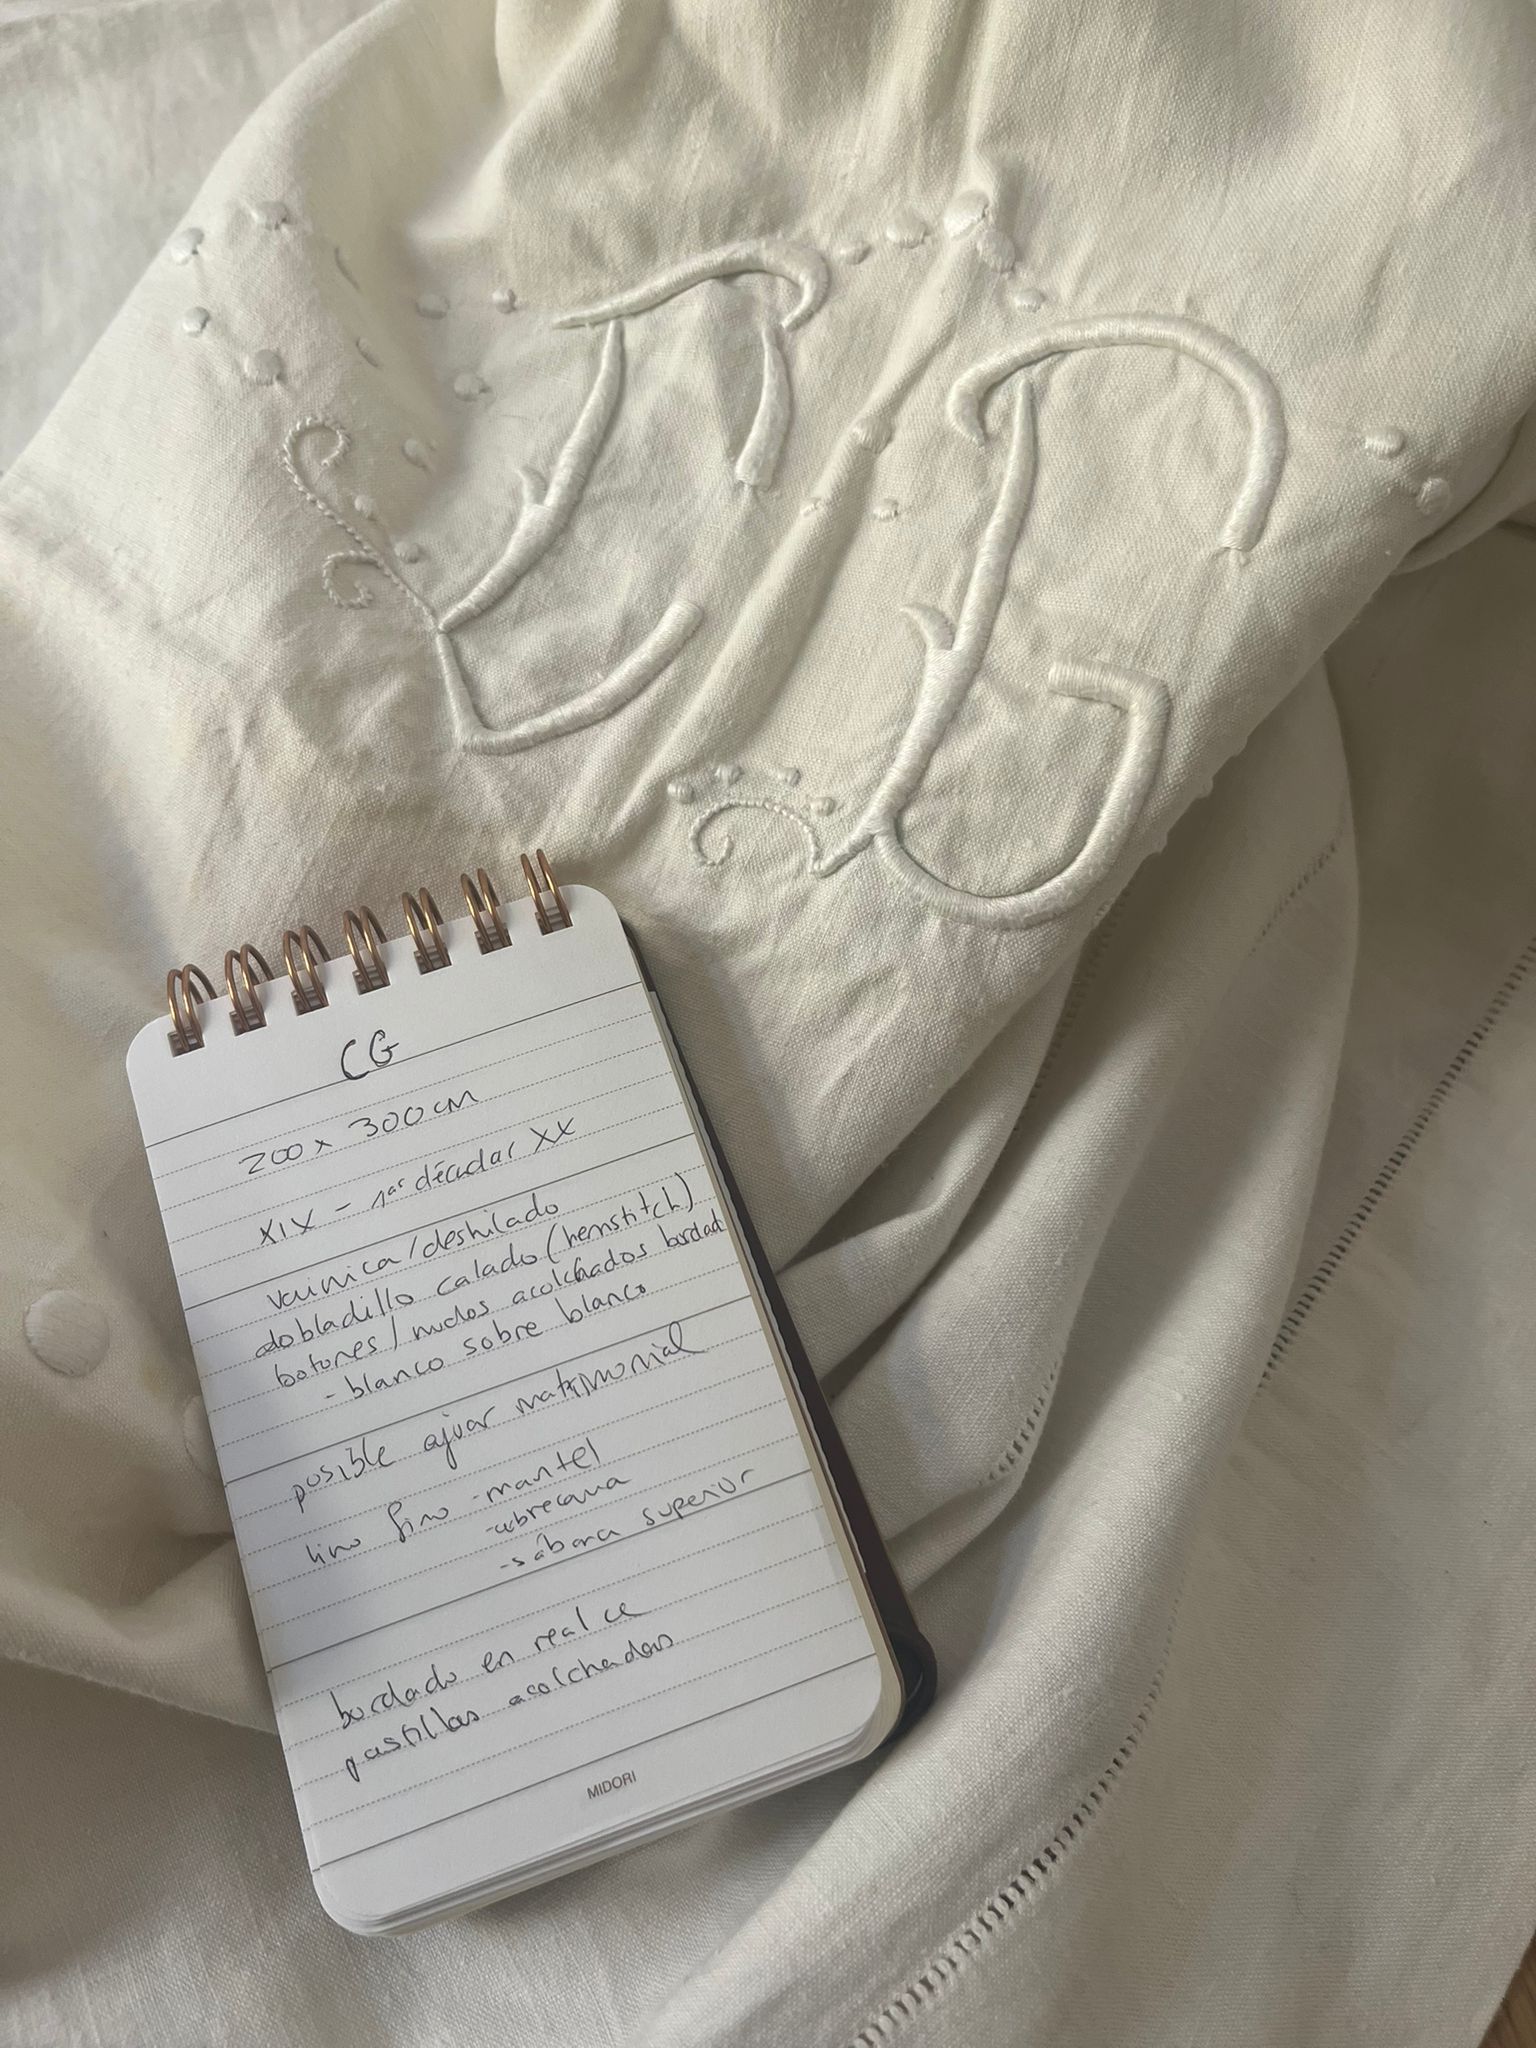 CG
200 x 300 cm
XIX - 1as décadas XX
vainica/deshilado
dobladillo calado (hemstitch)
botones/nudos acolchados bordad
- blanco sobre blanco
posible ajuar matrimonial
lino fino - mantel
- cubrecama
- sábana superior
bordado en realce
pastillas acolchadas
MIDORI